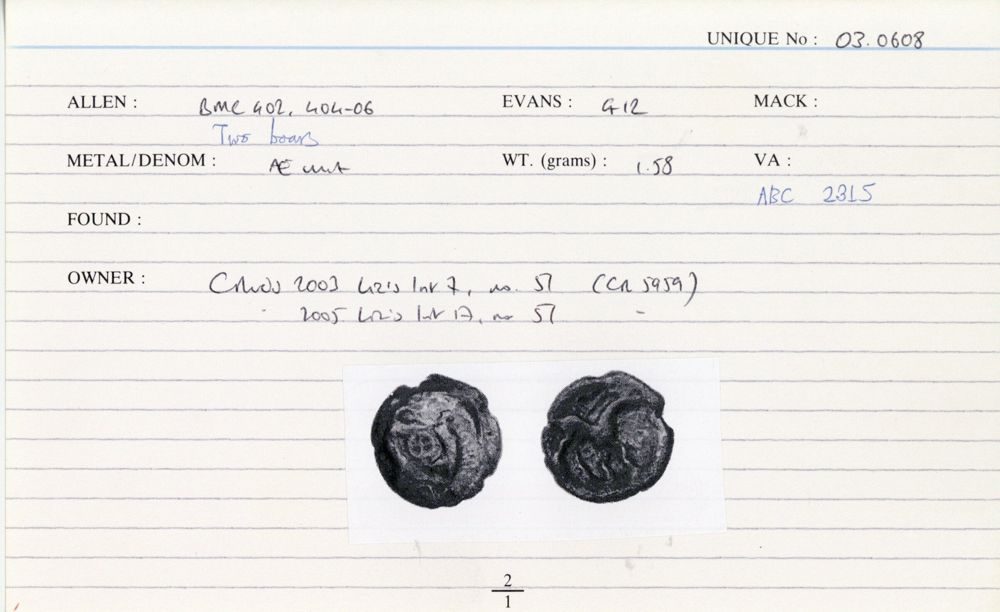 UNIQUE No : 03.0608
ALLEN : BMC 402, 404-06 EVANS : G12 MACK :
Two boars
METAL/DENOM : Æ unit WT. (grams) : 1.58 VA :
ABC 2315
FOUND :
OWNER : 2003 Liz's List 7, no. 51 (CR 5959)
2005 Liz's List 17, no 51 -
2
1